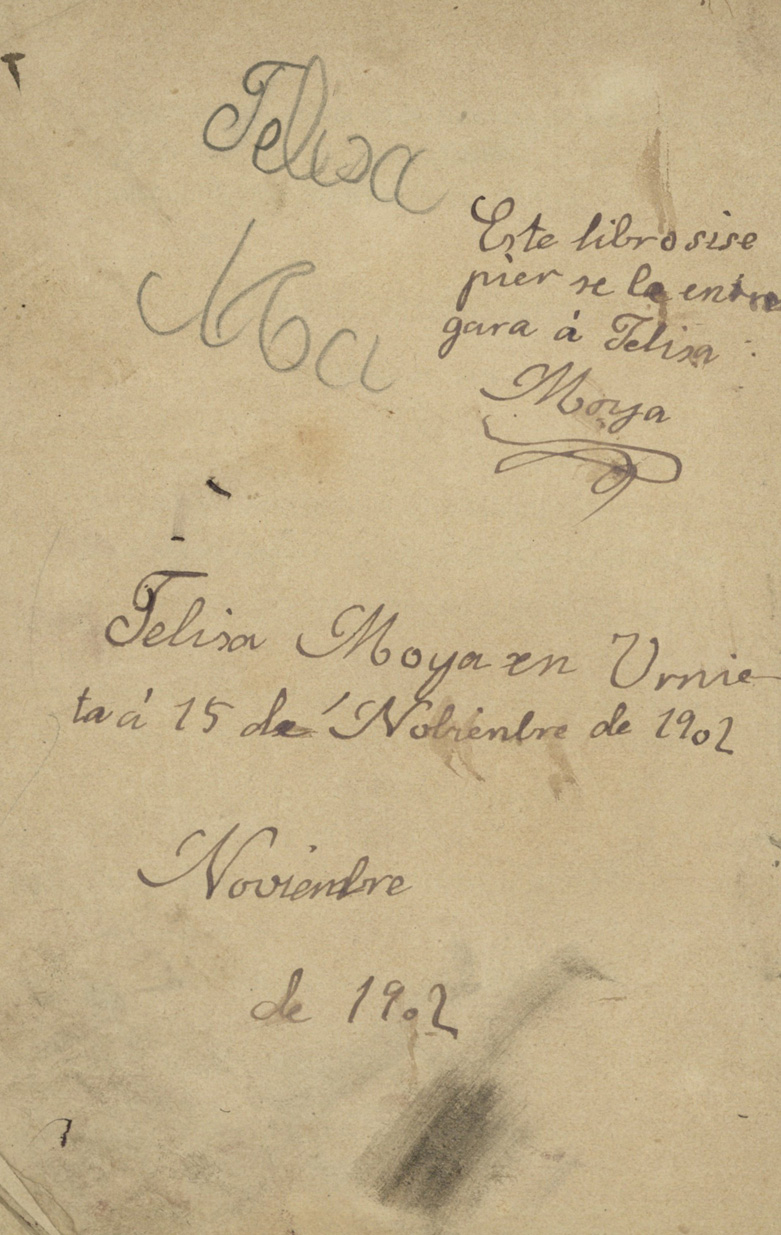 Felisa
Ma
Este libro sise
pier se le entre
gara á Felisa
Moya
Felisa Moya en Urnie
ta á 15 de Nobienbre de 1902
Novienbre
de 1902